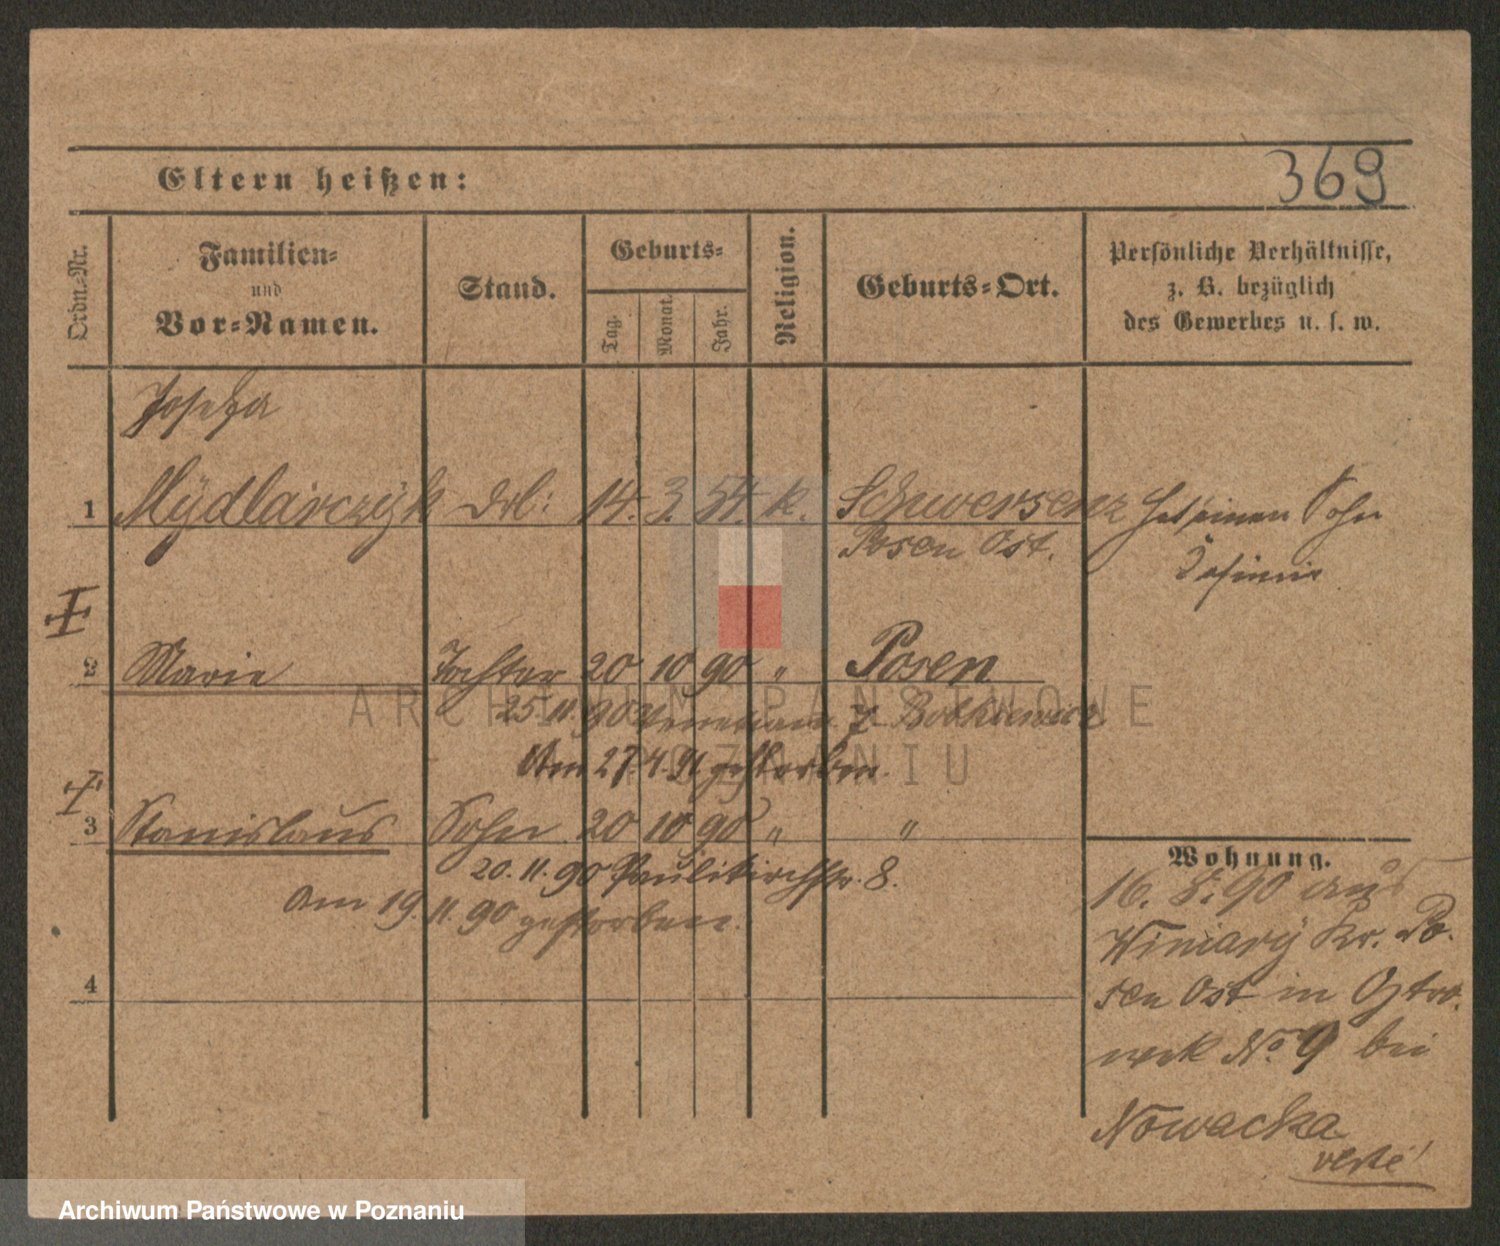 369
Eltern heißen:
Ordn.-Nr.
Familien-
und
Vor-Namen.
Stand.
Geburts-
Tag.
Monat.
Jahr.
Religion.
Geburts-Ort.
Persönliche Verhältnisse,
z. B. bezüglich
des Gewerbes u. s. w.
Josefa
1 Mÿdlarczÿk 14. 3. 54. k. Schwersenz hat einen Sohn
Posen Ost.
2 Marie Tochter 20 10 90 " Posen
25.11.90
Am 27.4.91 gestorben.
3 Stanislaus Sohn 20 10 90 " "
20.11.90 Paulikirchstr. 8.
Am 19.11.90 gestorben.
4
Wohnung.
16. 5. 90 aus
Winiarÿ Kr. Po-
sen Ost in
No. 9 bei
Nowacka
verte!
ARCHIWUM PAŃSTWOWE
W POZNANIU
Archiwum Państwowe w Poznaniu